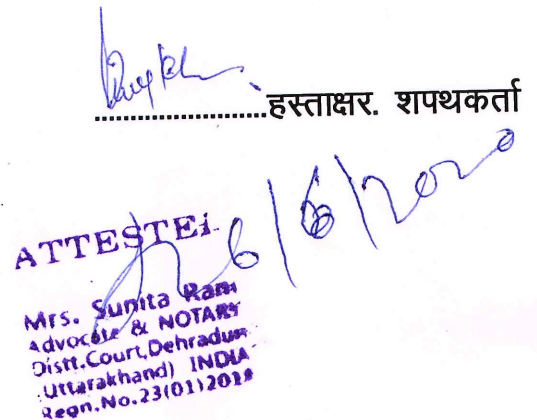 ....................हस्ताक्षर. शपथकर्ता
6/6/2020
ATTESTEd
Mrs. Sunita Ram
Advocate & NOTARY
Distt.Court,Dehradun
(Uttarakhand) INDIA
Regn.No.23(01)2018